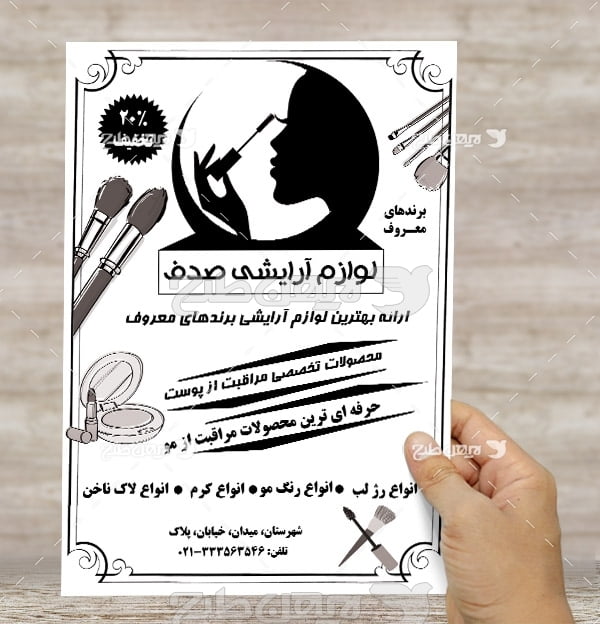 ۲۰%
تخفیف
برندهای
معـروف
لوازم آرایشی صدف
ارائه بهترین لوازم آرایشی برندهای معروف
محصولات تخصصی مراقبت از پوست
حرفه ای ترین محصولات مراقبت از مو
انواع رژ لب ● انواع رنگ مو ● انواع کرم ● انواع لاک ناخن
شهرستان، میدان، خیابان، پلاک
تلفن: ۳۳۳۵۶۳۵۴۶-۰۲۱
میهن طرح